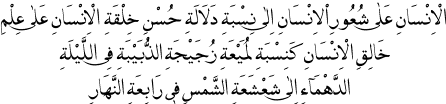 الْاِنْسَانِ عَلٰى شُعُورِ الْاِنْسَانِ اِلٰى نِسْبَةِ دَلَالَةِ حُسْنِ خِلْقَةِ الْاِنْسَانِ عَلٰى عِلْمِ
خَالِقِ الْاِنْسَانِ كَنِسْبَةِ لُمَيْعَةِ زُجَيْجَةِ الذُّبَيْبَةِ فِى اللَّيْلَةِ
الدَّهْمَاۤءِ اِلٰى شَعْشَعَةِ الشَّمْسِ فِى رَابِعَةِ النَّهَارِ